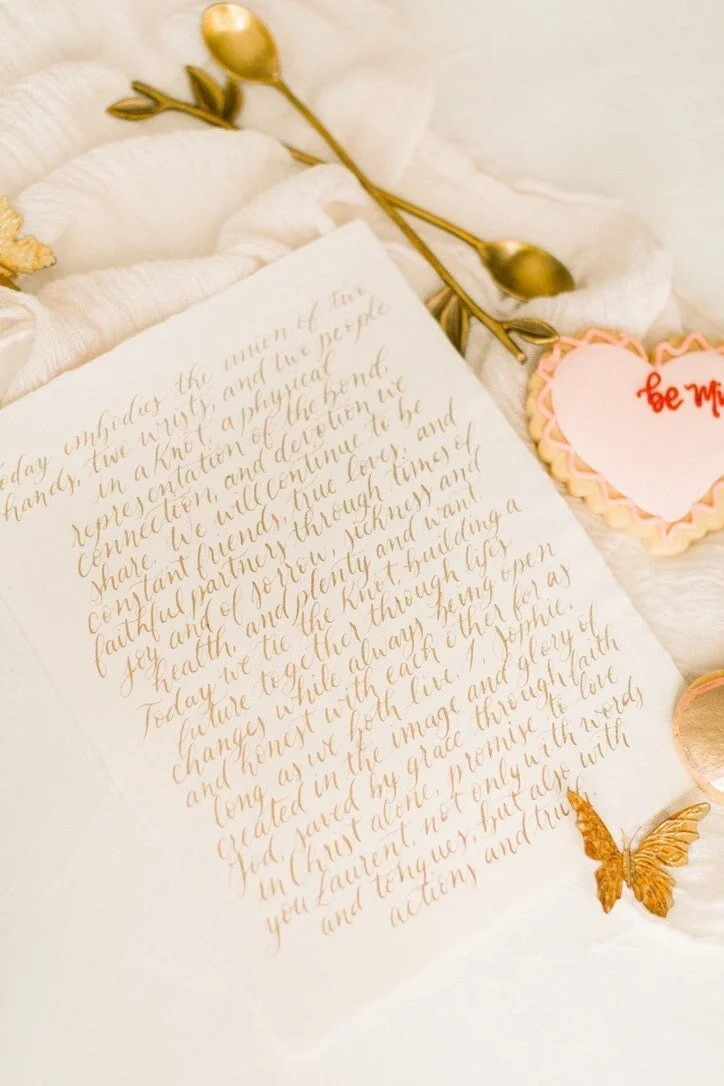 today embodies the union of two
hands, two wrists, and two people
in a knot, a physical
representation of the bond,
connection, and devotion we
share. We will continue to be
constant friends, true loves, and
faithful partners through times of
joy and of sorrow, sickness and
health, and plenty and want.
Today we tie the knot, building a
future together through lifes
changes while always being open
and honest with each other for as
long as we both live. I, Sophie,
created in the image and glory of
God, saved by grace through faith
in Christ alone, promise to love
you Laurent, not only with words
and tongues, but also with
actions and truth.
be Mi